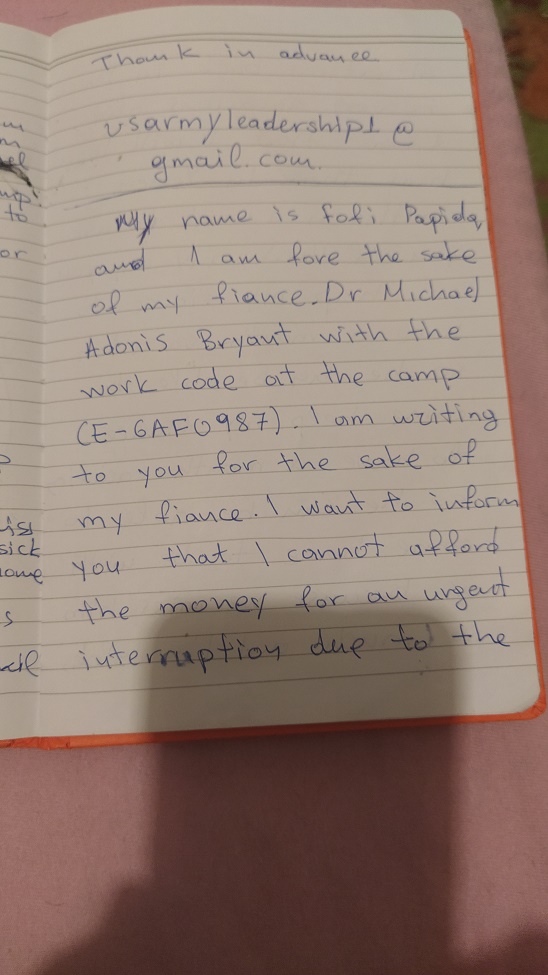 Thank in advance
usarmyleadership1@
gmail.com.
My name is fofi Papida,
and I am fore the sake
of my fiance. Dr Michael
Adonis Bryant with the
work code at the camp
(E-6AF0987). I am writing
to you for the sake of
my fiance. I want to inform
you that I cannot afford
the money for an urgent
interruption due to the
to
or
sick
ome
s